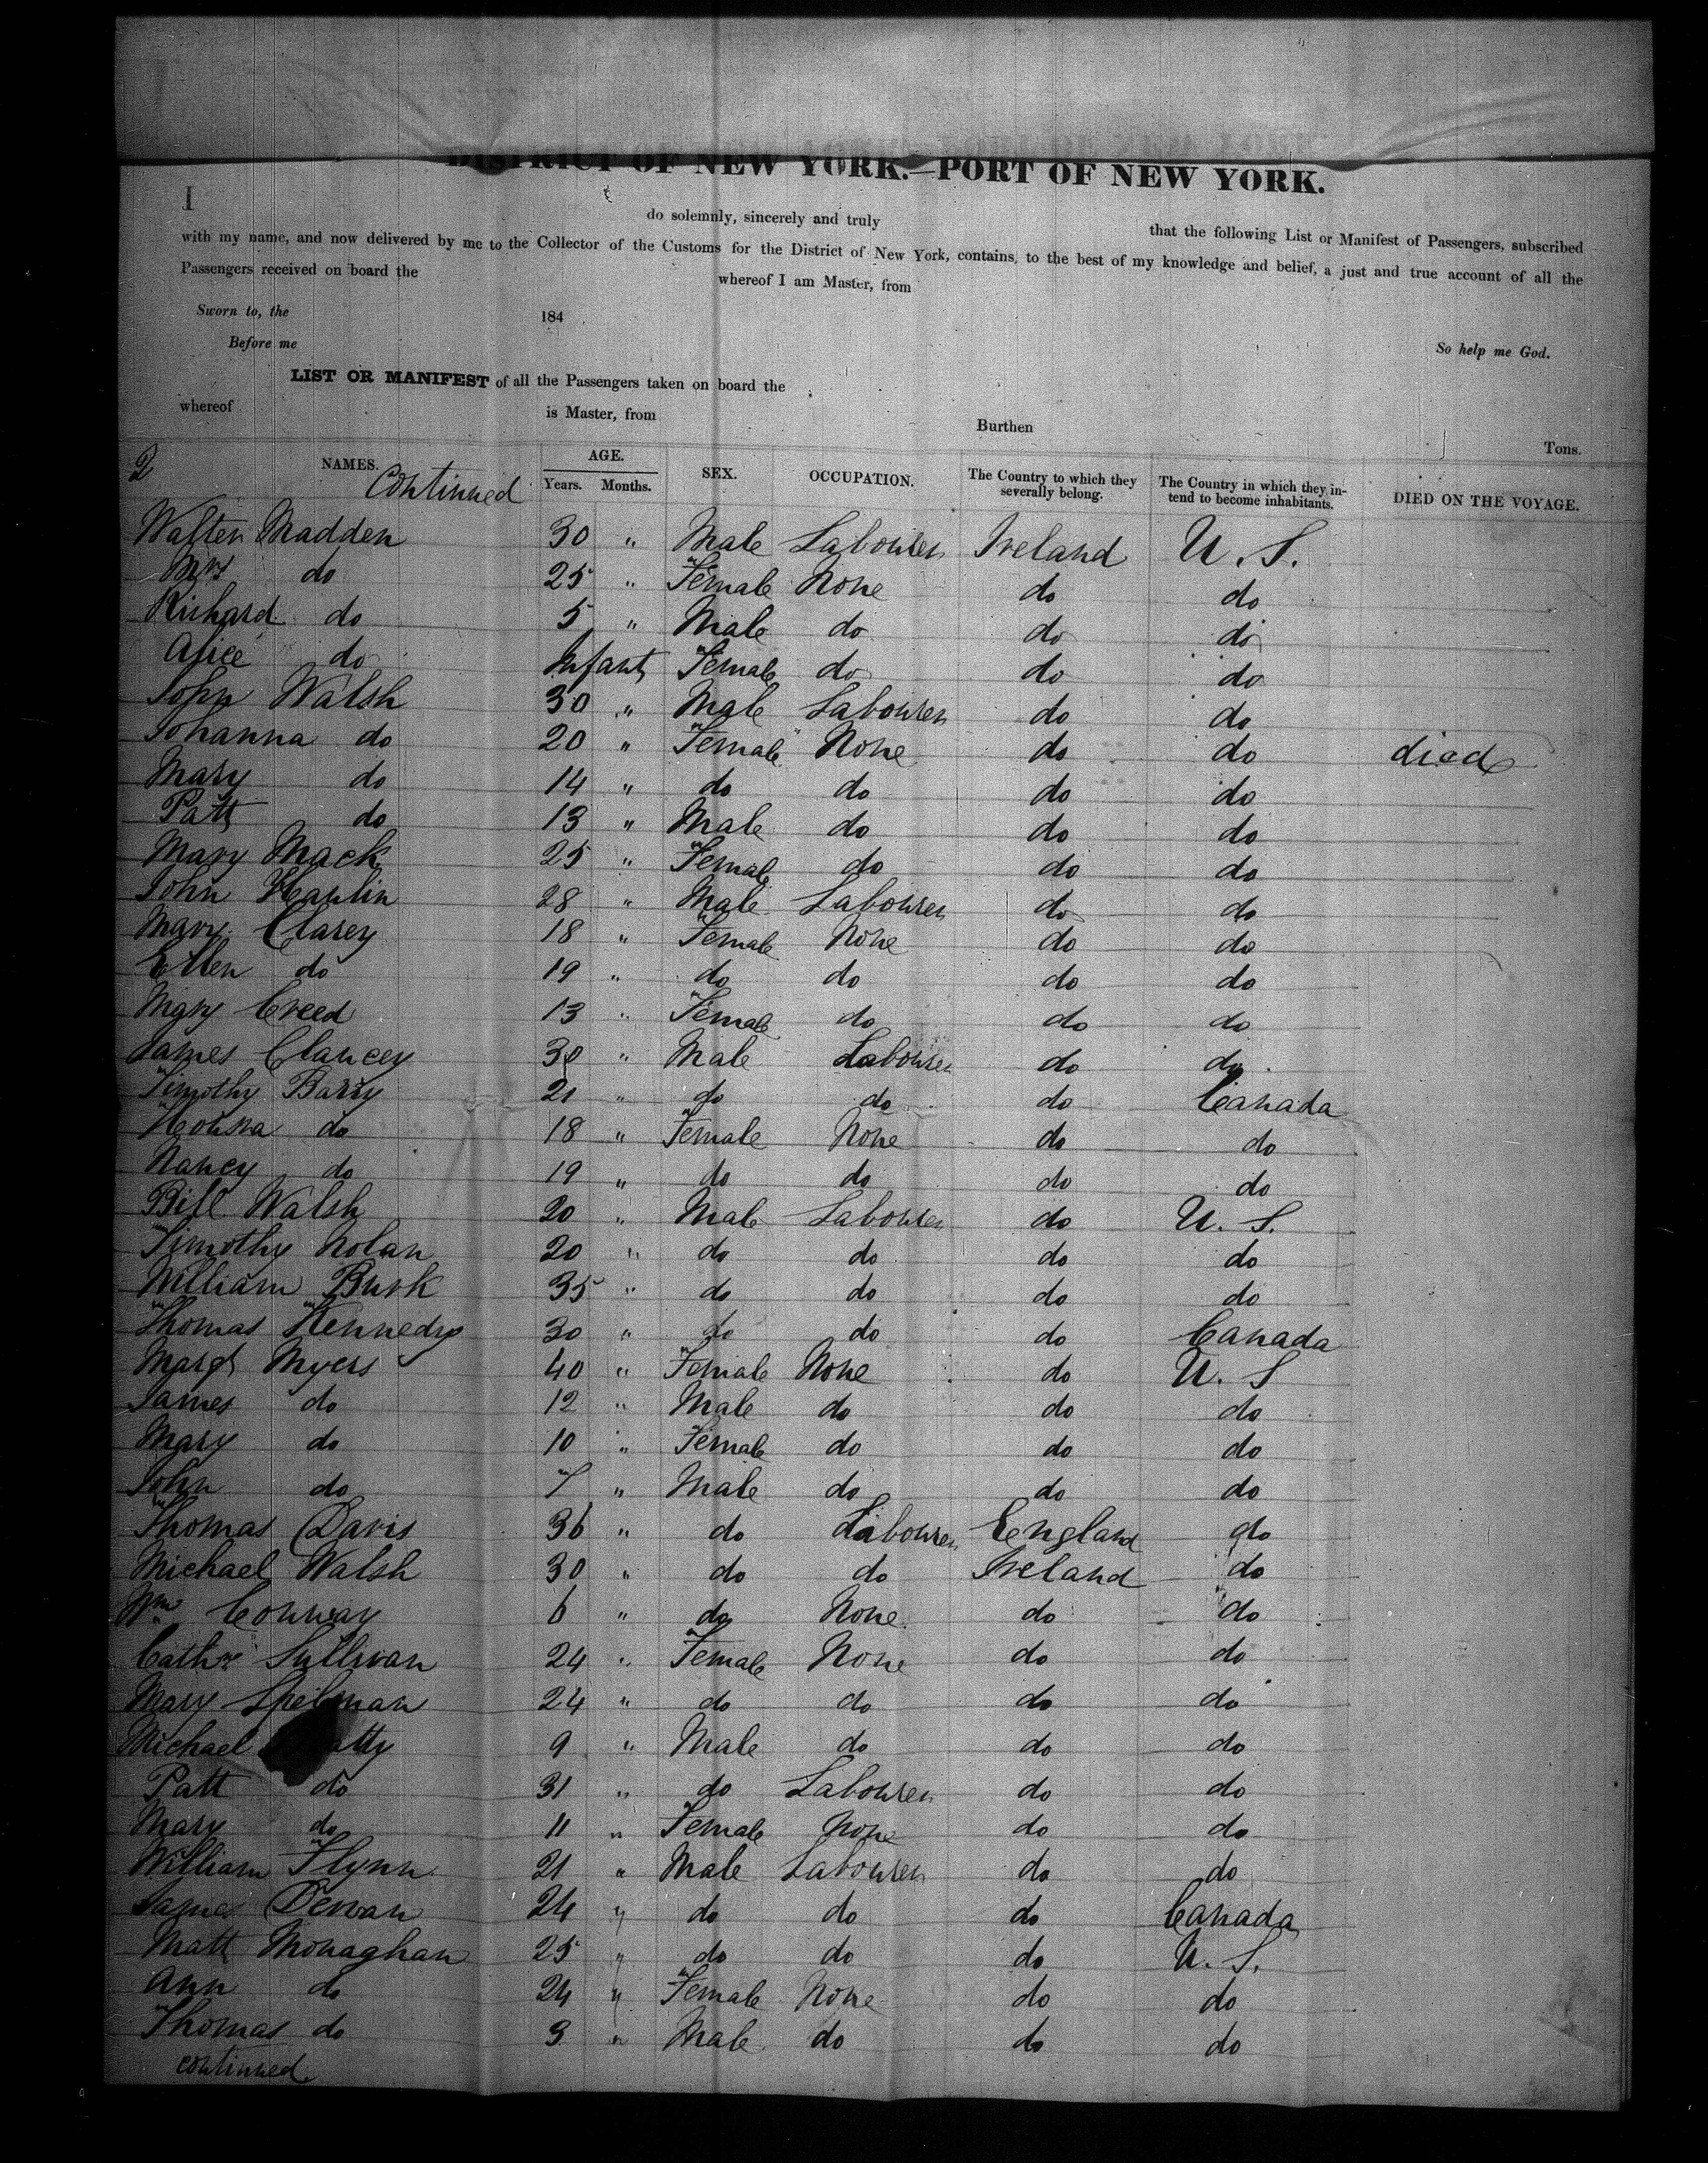 DISTRICT OF NEW YORK.—PORT OF NEW YORK.
I do solemnly, sincerely and truly that the following List or Manifest of Passengers, subscribed
with my name, and now delivered by me to the Collector of the Customs for the District of New York, contains, to the best of my knowledge and belief, a just and true account of all the
Passengers received on board the whereof I am Master, from
Sworn to, the 184
Before me So help me God.
LIST OR MANIFEST of all the Passengers taken on board the
whereof is Master, from Burthen Tons.
2 NAMES. Continued AGE. Years. Months. SEX. OCCUPATION. The Country to which they severally belong. The Country in which they intend to become inhabitants. DIED ON THE VOYAGE.
Walter Madden 30 " Male Labourer Ireland U. S.
Mrs do 25 " Female None do do
Richard do 5 " Male do do do
Alice do Infant Female do do do
John Walsh 30 " Male Labourer do do
Johanna do 20 " Female None do do died
Mary do 14 " do do do do
Patt do 13 " Male do do do
Mary Mack 25 " Female do do do
John Hanlin 28 " Male Labourer do do
Mary Clarey 18 " Female None do do
Ellen do 19 " do do do do
Mary Creed 13 " Female do do do
James Clancey 30 " Male Labourer do do
Timothy Barry 21 " do do do Canada
do 18 " Female None do do
Nancy do 19 " do do do do
Bill Walsh 20 " Male Labourer do U. S.
Timothy Nolan 20 " do do do do
William Burk 35 " do do do do
Thomas Kennedy 30 " do do do Canada
Margt Myers 40 " Female None do U. S
James do 12 " Male do do do
Mary do 10 " Female do do do
John do 7 " Male do do do
Thomas Davis 36 " do Labourer England do
Michael Walsh 30 " do do Ireland do
Wm Conway 6 " do None do do
Cathne Sullivan 24 " Female None do do
Mary Spelman 24 " do do do do
Michael 9 " Male do do do
Patt do 31 " do Labourer do do
Mary do 11 " Female None do do
William Flynn 21 " Male Labourer do do
James Dewan 24 " do do do Canada
Matt Monaghan 25 " do do do U. S.
Ann do 24 " Female None do do
Thomas do 3 " Male do do do
continued